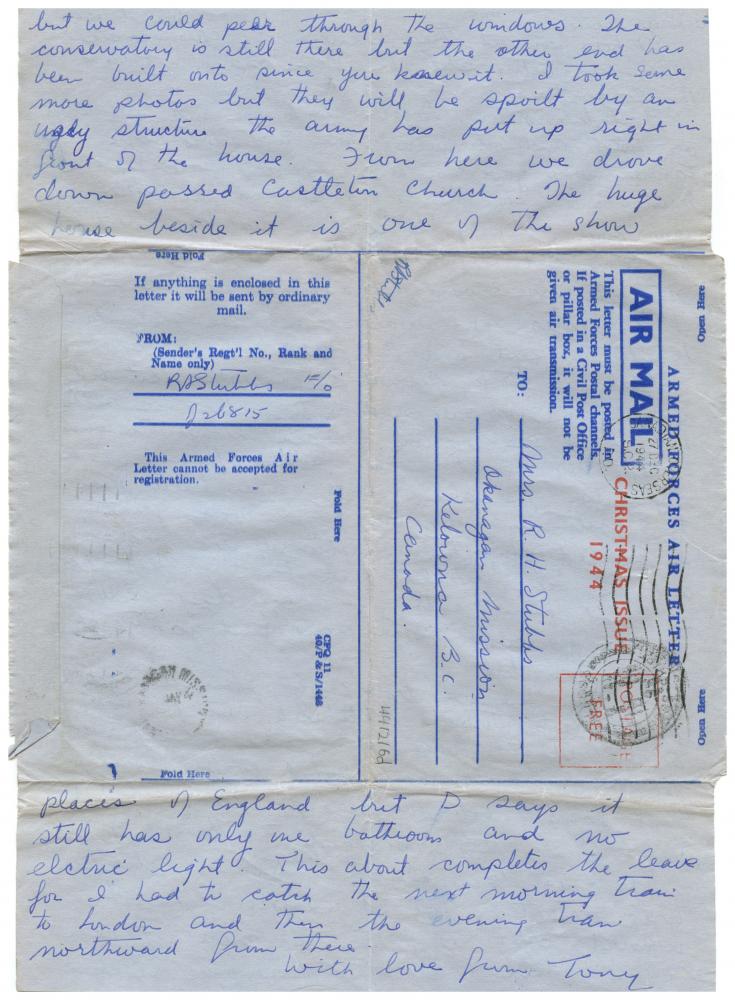 but we could peer through the windows. The
conservatory is still there but the other end has
been built onto since you knew it. I took some
more photos but they will be spoilt by an
ugly structure the army has put up right in
front of the house. From here we drove
down passed Castleton Church. The huge
house beside it is one of the show
Fold Here
If anything is enclosed in this
letter it will be sent by ordinary
mail.
FROM:
(Sender's Regt'l No., Rank and
Name only)
RAStubbs F/o
J26815
This Armed Forces Air
Letter cannot be accepted for
registration.
Fold Here
CPQ 11
40/P & S/1446
Fold Here
Open Here
Open Here
ARMED FORCES AIR LETTER
AIR MAIL
CHRISTMAS ISSUE
1944
POSTAGE
FREE
This letter must be posted in
Armed Forces Postal channels.
If posted in a Civil Post Office
or pillar box, it will not be
given air transmission.
TO:
Mrs. R. H. Stubbs
Okanagan Mission
Kelowna B.C.
Canada.
27 DEC
1944
441216d
places of England but D says it
still has only one bathroom and no
elctric light. This about completes the leave
for I had to catch the next morning train
to London and then the evening train
northward from there.
With love from Tony